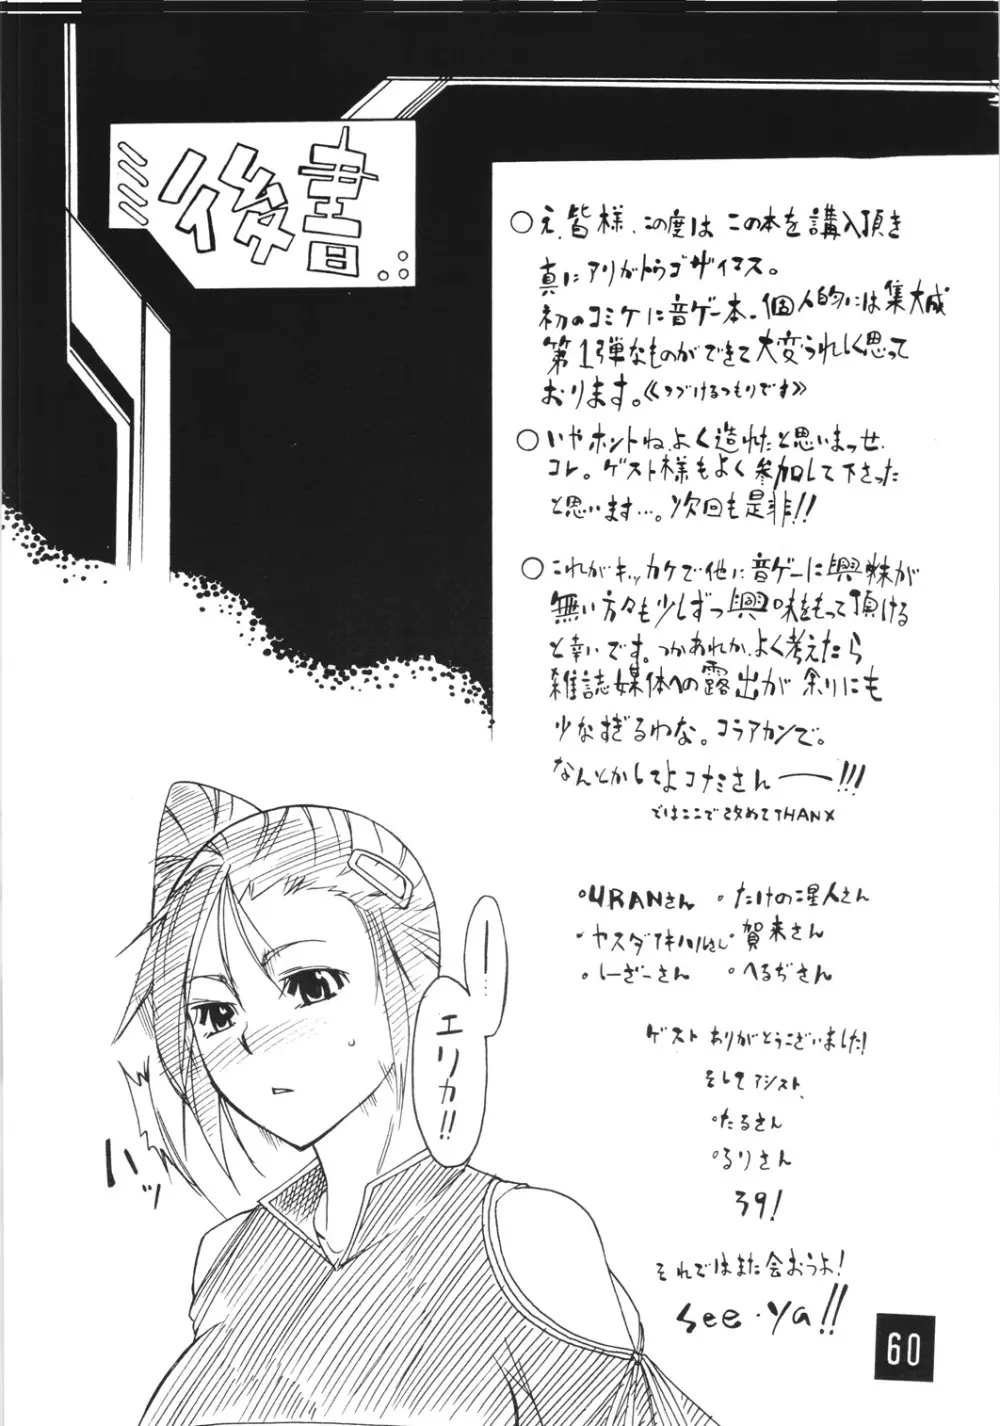 後書
○え、皆様、この度は この本を講入頂き
真にアリがトウゴザイマス。
初のコミケに音ゲー本。個人的には集大成
第1弾なものができて大変うれしく思って
おります。《つづけるつもりです》
○いやホントね、よく造れたと思いまっせ、
コレ。ゲスト様もよく参加して下さった
と思います…。次回も是非!!
○これがキッカケで他に音ゲーに興味が
無い方々も少しずつ興味をもって頂ける
と幸いです。つかあれか、よく考えたら
雑誌媒体への露出が余りにも
少なすぎるわな。コラアカンで。
なんとかしてよコナミさん――!!!
ではここで改めてTHANX
・URANさん ・たけの星人さん
・ヤスダアキハルさし ・賀来さん
・しーざーさん ・へるぢさん
ゲスト ありがとうございました!
そしてアシスト、
・たるさん
・るりさん
39!
それではまた会おうよ!
See・ya!!
ー
エリカ!!
ハッ
60